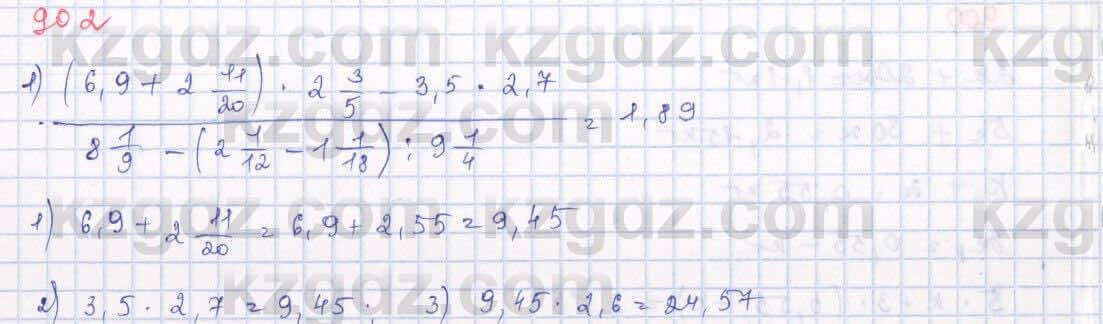 902
1) (6,9 + 2 11/20) · 2 3/5 - 3,5 · 2,7
8 1/9 - (2 1/12 - 1 1/18) : 9 1/4 = 1,89
1) 6,9 + 2 11/20 = 6,9 + 2,55 = 9,45
2) 3,5 · 2,7 = 9,45; 3) 9,45 · 2,6 = 24,57
kzgdz.com kzgdz.com kzg
kzgdz.com kzgdz.com kzg